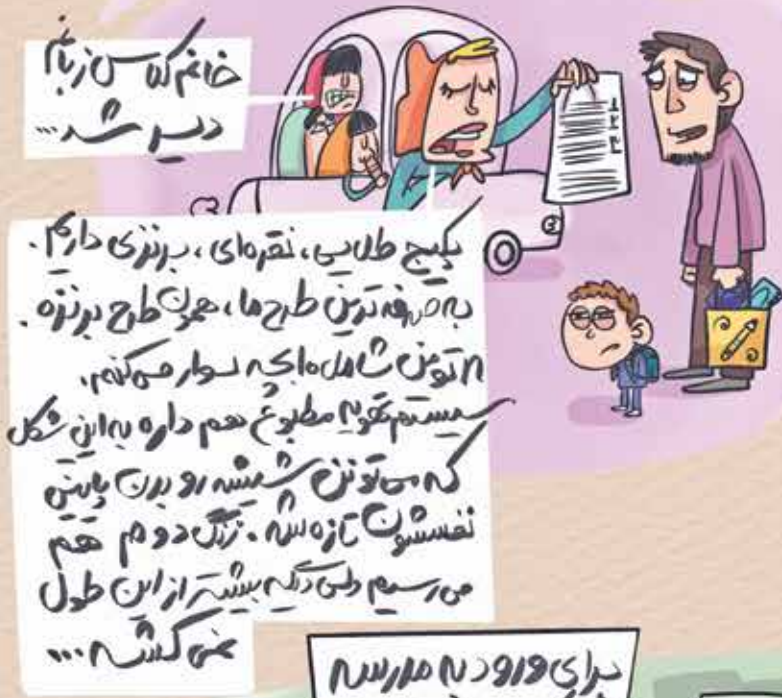 خانم کلاس زبانم
دیر شد...
پکیج طلایی، نقره‌ای، برنزی داریم.
به صرفه‌ترین طرح ما، همون طرح برنزه.
تومن شامل بچه سوار می‌کنیم.
سیستم تهویه مطبوع هم داره به این شکل
که می‌تونن شیشه رو بدن پایین
نفسشون تازه شه. زنگ دوم هم
می‌رسیم ولی دیگه بیشتر از این طول
نمی‌کشه...
برای ورود به مدرسه